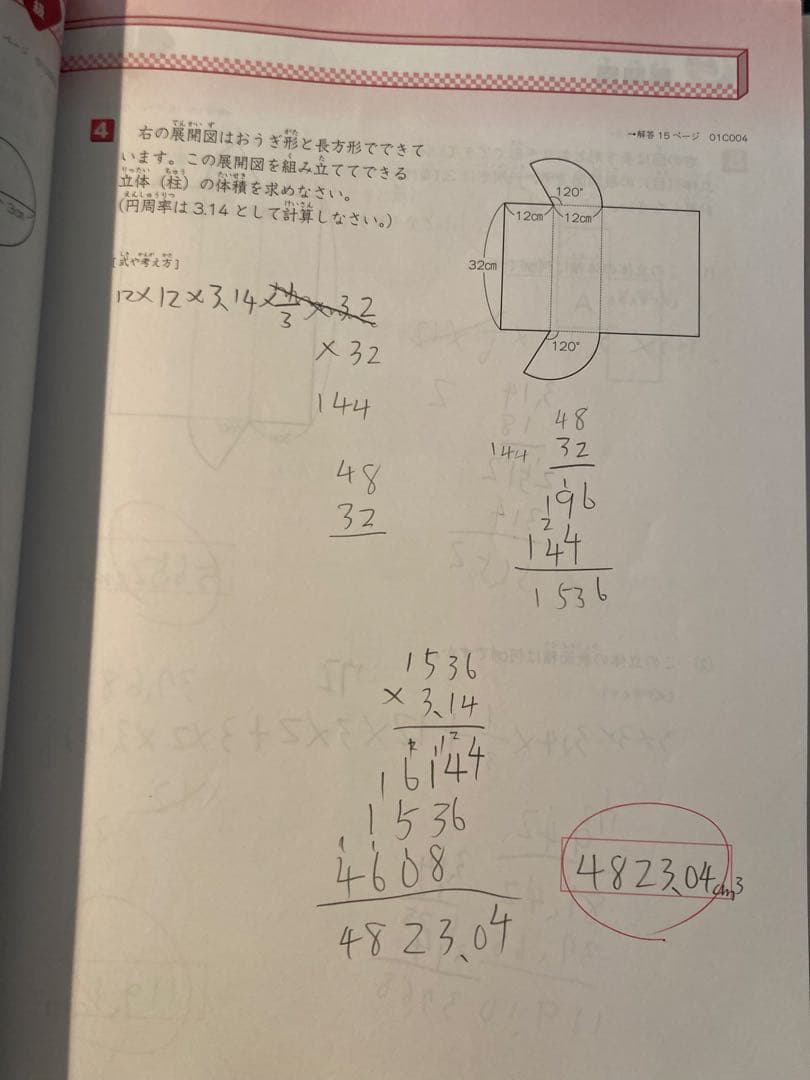 級
→解答 15 ページ 01C004
4 右の展開図はおうぎ形と長方形でできて
います。この展開図を組み立ててできる
立体（柱）の体積を求めなさい。
（円周率は 3.14 として計算しなさい。）
120°
12cm 12cm
32cm
120°
3cm
[式や考え方]
12×12×3.14×
3
×3.2
×32
144
48
32
48
32
144
196
144
1536
1536
×3.14
16144
1536
4608
4823.04
4823.04cm3